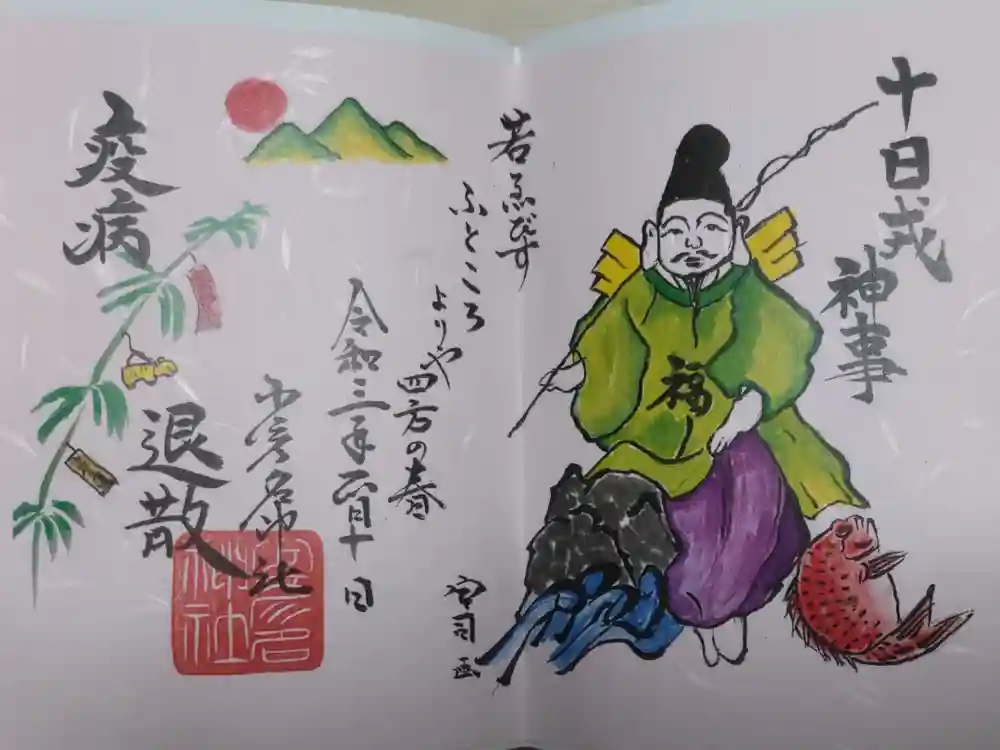 十日戎
神事
福
若ゑびす
ふところ
よりや
四方の春
宮司画
令和三年一月十日
少彦名神社
疫病
退散